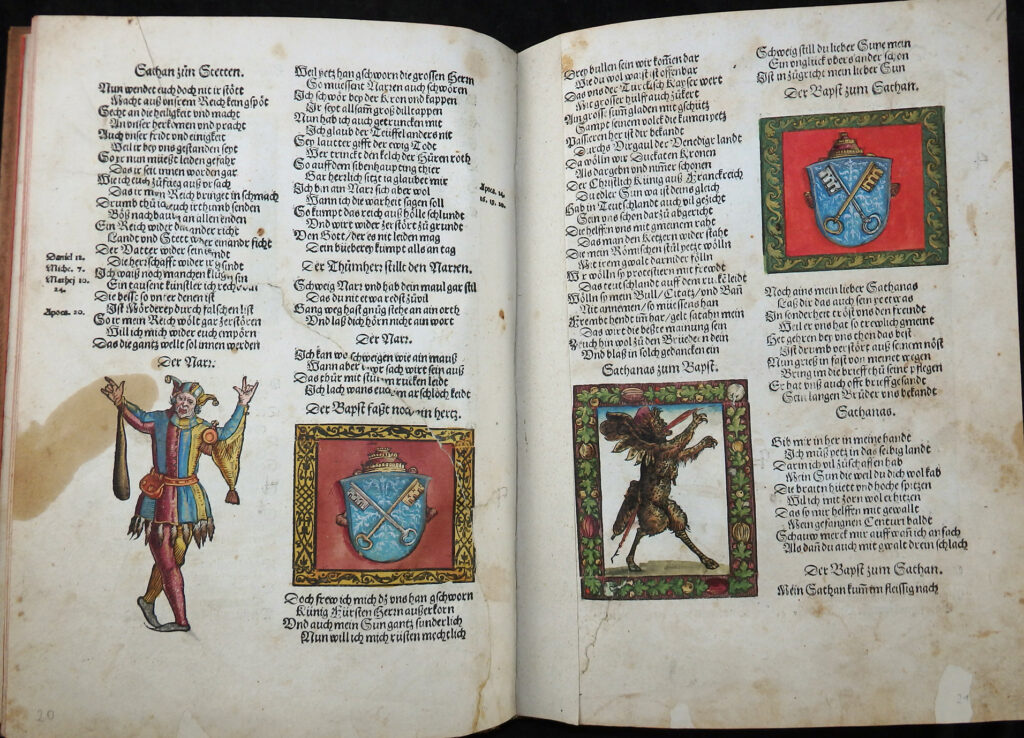 Sathan zůn Stetten.
Nun wendet euch doch nit ir stött
Macht auß unsrem Reich kein gspöt
Secht an die heiligkeit und macht
An unser herkomen und pracht
Auch unser frid und einigkeit
Weil ir bey uns gestanden seyt
So ir nun müeßt leiden gefahr
Das ir seit innen worden gar
Wie ich euch
Das ir mein Reich bringet in schmach
Drumb thů ich euch irthumb senden
Böß nachbaurn an allen enden
Ein Reich wider ander richt
Landt und Stett wider einandr ficht
Der Vatter wider sein kindt
Die herschafft wider ir gsindt
Daniel 12.
Miche. 7.
Mathei 10.
24.
Ich waiß noch manchen klůgen sin
Ein tausent künstler ich
Die beste so unter denen ist
Ist Mörderey durch falschen list
Apoca. 20.
So ir mein Reich wölt gar zerstören
Will ich mich wider euch empörn
Das die gantz welt sol innen werden
Der Narr.
Weil yetz han gschworn die grossen Herrn
So muessent Narren auch schwören
Ich schwör bey der Kron und kappen
Ir seyt allsam groß dilltappen
Nun hab ich auch getruncken mit
Ich glaub der Teüffel anders nit
Sey lautter gifft der ewig Todt
Wer trinckt den kelch der Hüren roth
So auff dem sibenhaupting thier
Gar herlich sitzt ia glaubet mir
Apoca. 14.
Ich bin ain Narr sich aber wol
Wann ich die warheit sagen soll
So kumpt das reich auß höllschlundt
Und wirt wider zerstört zů grundt
Von Gott / der es nit leiden mag
Dem bieberey kumpt alls an tag
Der Thůmherr stillt den Narren.
Schweig Narr und hab dein maul gar stil
Das du nit etwa redst zůvil
Gang weg hast gnůg stehe an ain orth
Und laß dich hörn nicht ain wort
Der Narr.
Ich kan wol schweigen wie ain mauß
Wann aber wirt sein auß
Das thůr mit rucken leide
Ich lach wans arschloch keidt
Der Bapst faßt noch ein hertz.
Doch frew ich mich dz uns han gschworn
Künig Fürsten Herrn außerkorn
Und auch mein Sun gantz sunderlich
Nun will ich mich rüsten mechtlich
20
Drey bullen sein wir komen dar
Wie du wol waist ist offenbar
Das uns der Türckisch Kayser wert
Mit grosser hulff auch zůkert
An grosse sum gladen mit gschütz
Sampt seinem volck die kumen yetz
Passeren her ist dir bekandt
Durchs Virgaul der Venedig landt
Da wölln wir Ducaten Kronen
Als dargebn und nimer schonen
Der Christlich Künig auß Franckreich
Dů edler Sun wa ist deins gleich
Hab in Teutschlandt auch vil gezicht
Sein uns schon darzů abgericht
Die helffen uns mit gmeinem raht
Das man den Ketzern wider staht
Die mein Römischen stůl yetz wölln
Mit irem gwalt darnider fölln
Wir wölln sy protestiern mit frewdt
Das teutschlandt auff dem rucke leidt
Wölln so mein Bull / Citatz / und Ban
Nit annemen / so müessens han
Frembt hendt im har / gelt sathan mein
Das wirt die beste mainung sein
Zeuch hin wol zů den Brüedern dein
Und blaß in solch gedancken ein
Sathanas zům Bapst.
Schweig still du lieber Sune mein
Ein unglück ubers ander schon
Ist in zůgricht mein lieber Sun
Der Bapst zům Sathan.
Noch ains mein lieber Sathanas
Laß dir das auch sein yetwas
In sonderheit tröst uns den freindt
Weil er uns hat so trewlich gmeint
Het gehren bey uns than das best
Ist drumb verstört auß seinem nöst
Nun grieß in fast von meinet wegen
Bring im die brieff thů sein pflegen
Er hat uns auch offt brieff gsandt
Sein langen Brüder uns bekandt
Sathanas.
Gib mir in her in meine handt
Ich můß yetz in das selbig landt
Darin ich vil zůschaffen hab
Mein Sun die weil du dich wol kab
Die braiten hüett und hoche spitzen
Wil ich mit zorn wol erhitzen
Das so mir helffen mit gewalte
Mein gefangnen Centuri baldt
Schauw merck nur auff wañ ich an fach
Als dan du auch mit gwalt drein schlach
Der Bapst zům Sathan.
Mein Sathan kumm im fleissig nach
21